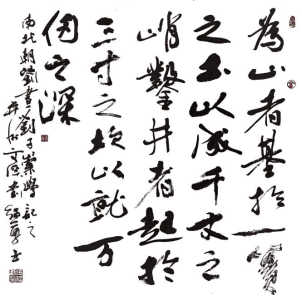 為山者基於一簣
之土以成千丈之
峭鑿井者起於
三寸之坎以就万
仞之深
南北朝劉晝劉子崇學